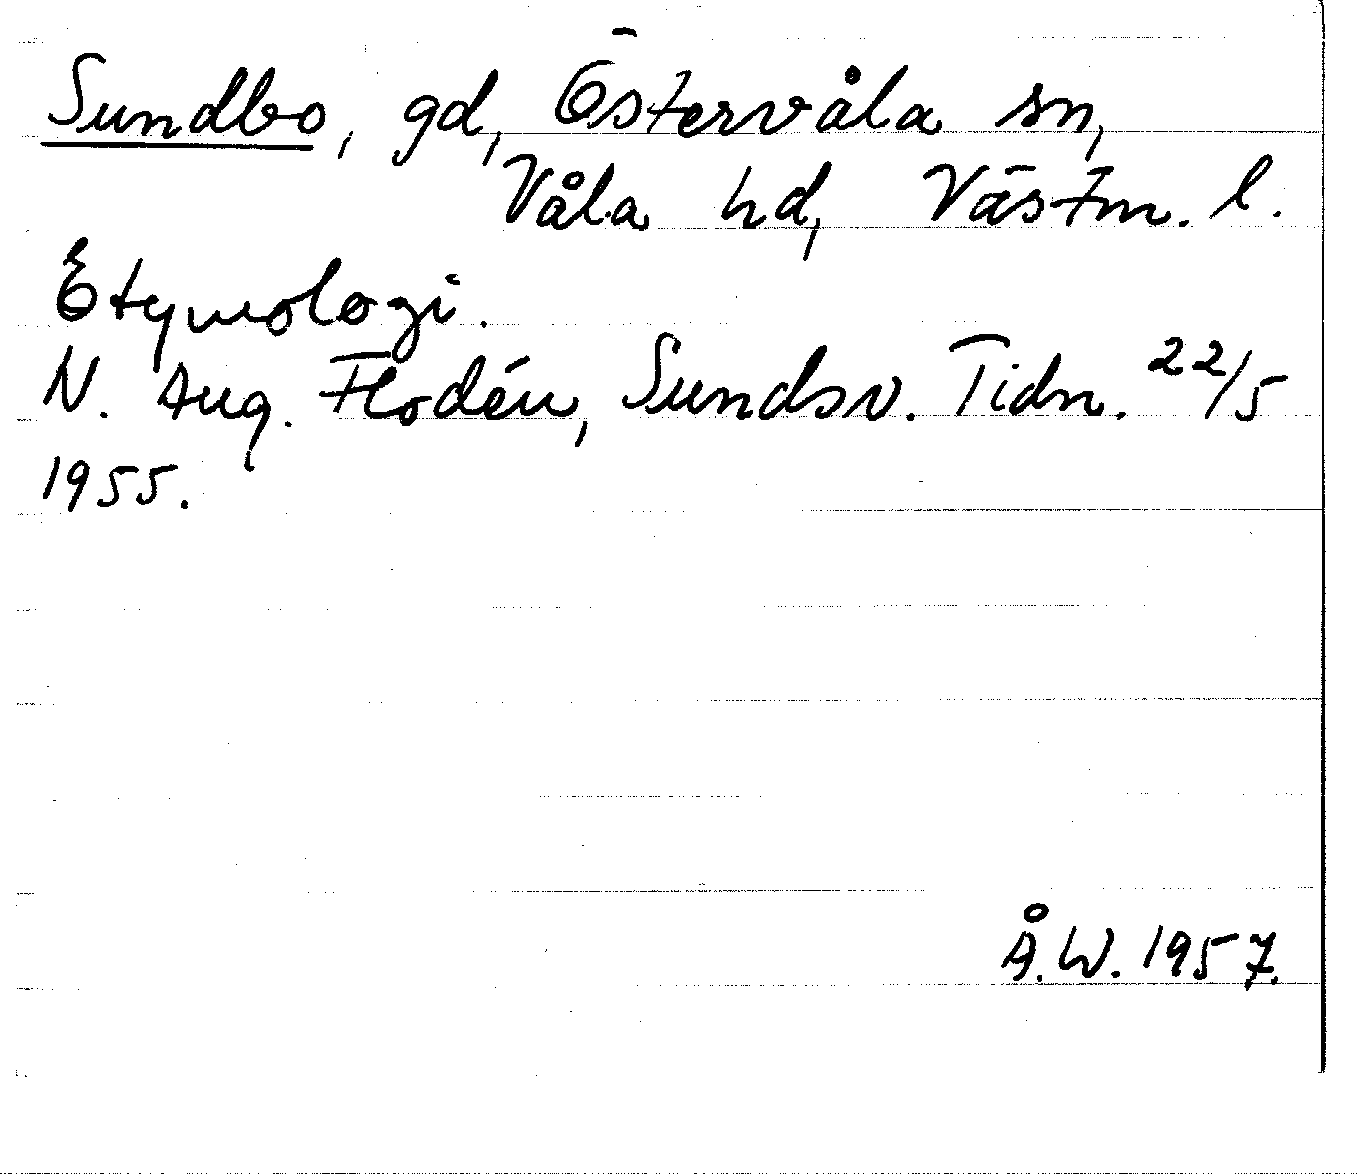 Sundbo, gd, Östervåla sn,
Våla hd, Västm. l.
Etymologi.
N. Aug. Flodén, Sundsv. Tidn. 22/5
1955.
Å.W. 1957.